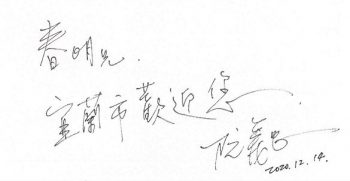 春明兄.
宜蘭市歡迎您
阮義忠
2020.12.14.